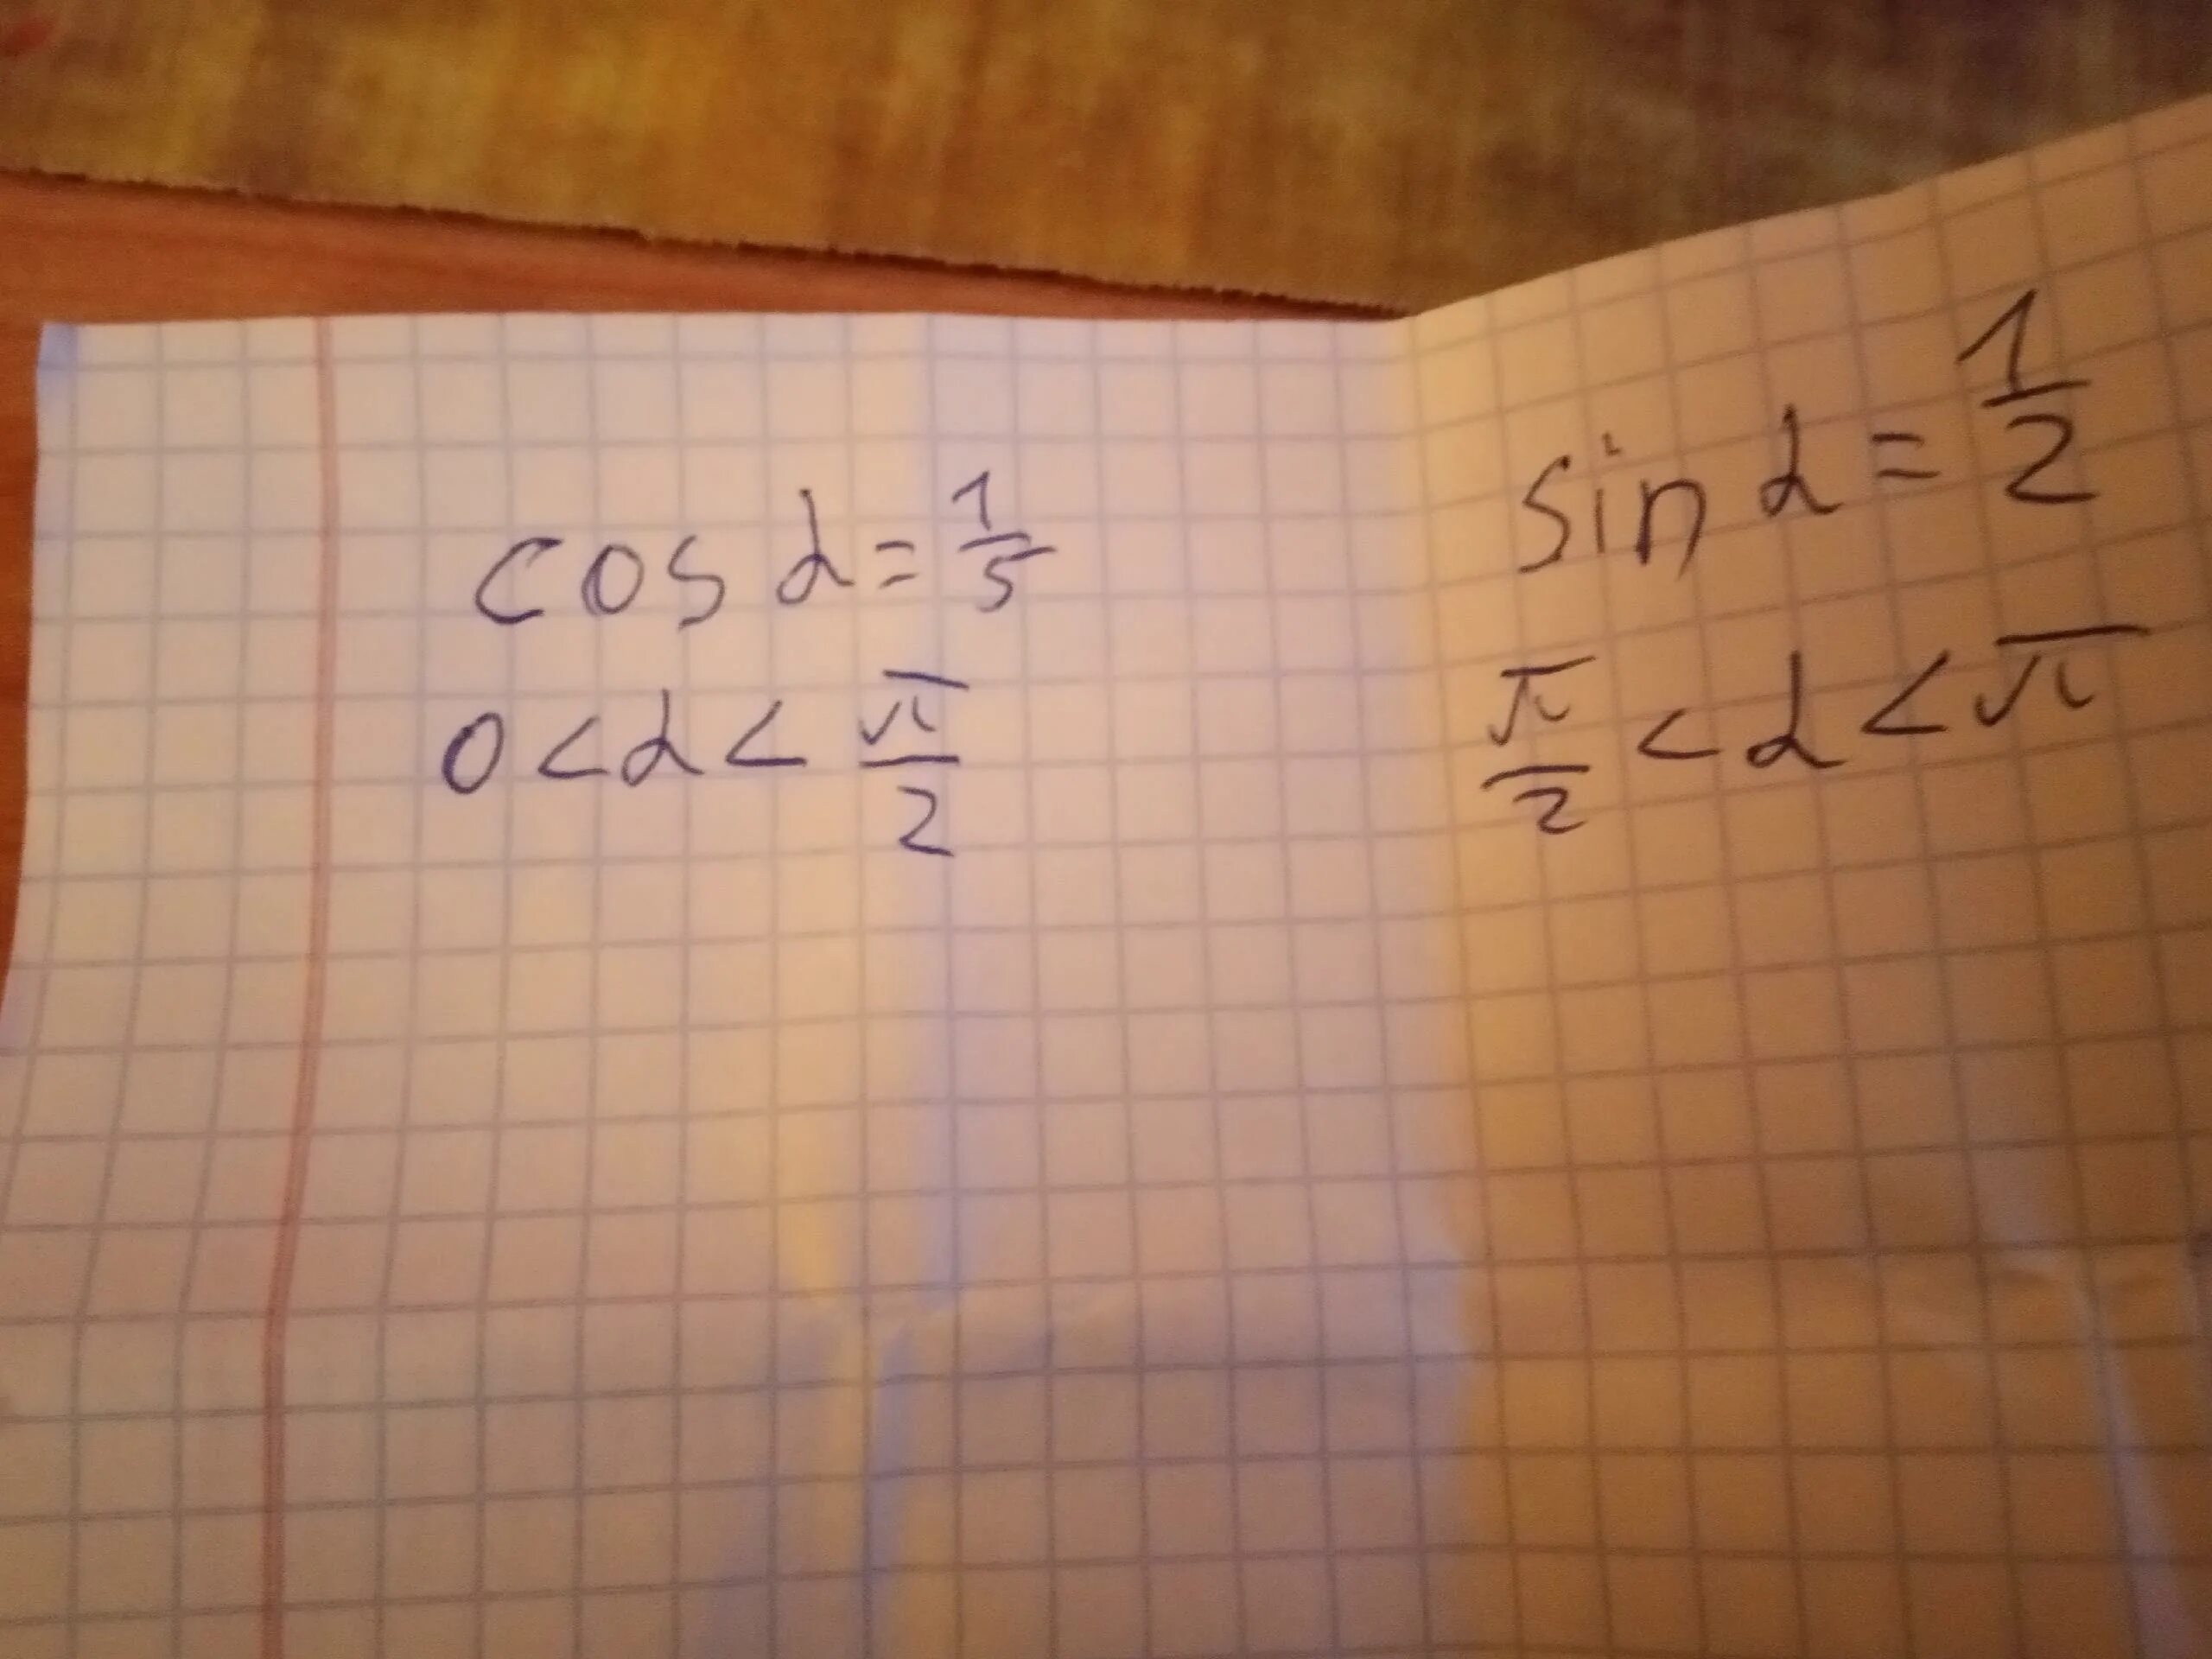 cos α = 1/5
0 < α < π/2
sin α = 1/2
π/2 < α < π